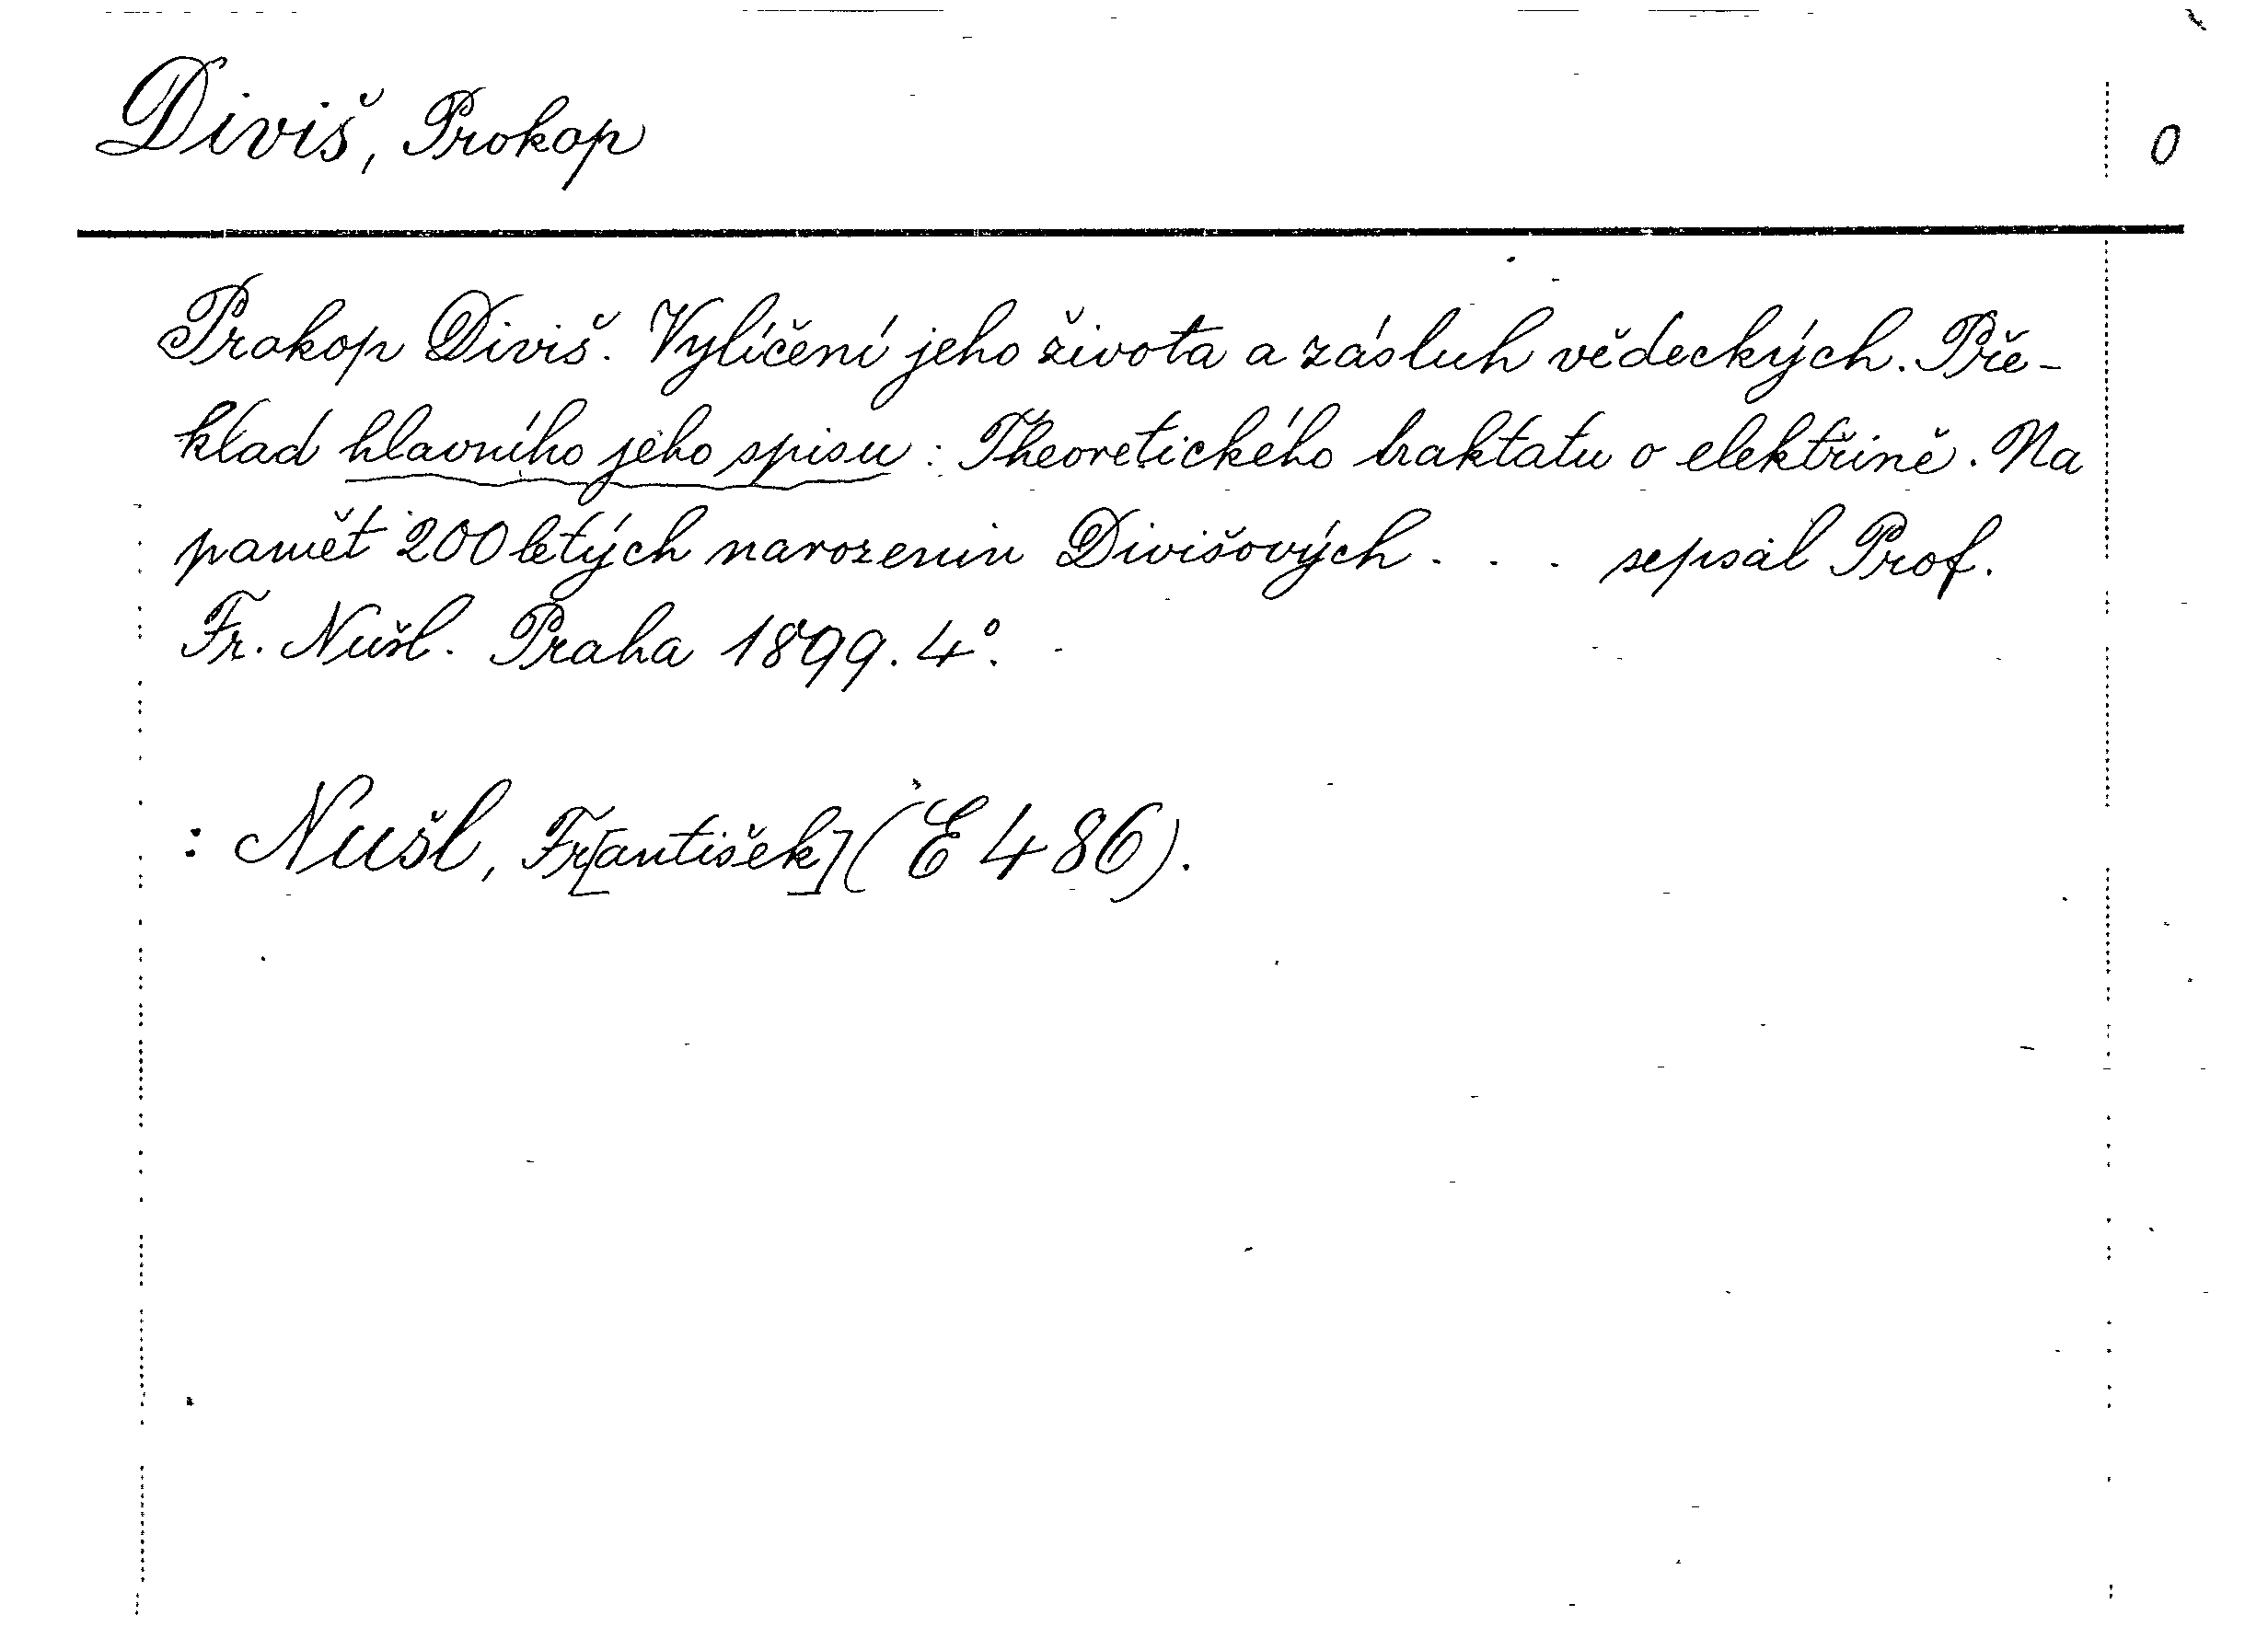 Diviš, Prokop 0
Prokop Diviš. Vylíčení jeho života a zásluh vědeckých. Pře-
klad hlavního jeho spisu: Theoretického traktatu o elektřině. Na
pamět 200letých narozenin Divišových . . . sepsal Prof.
Fr. Nušl. Praha 1899. 4°.
: Nušl, Fr[antišek] (E 486).